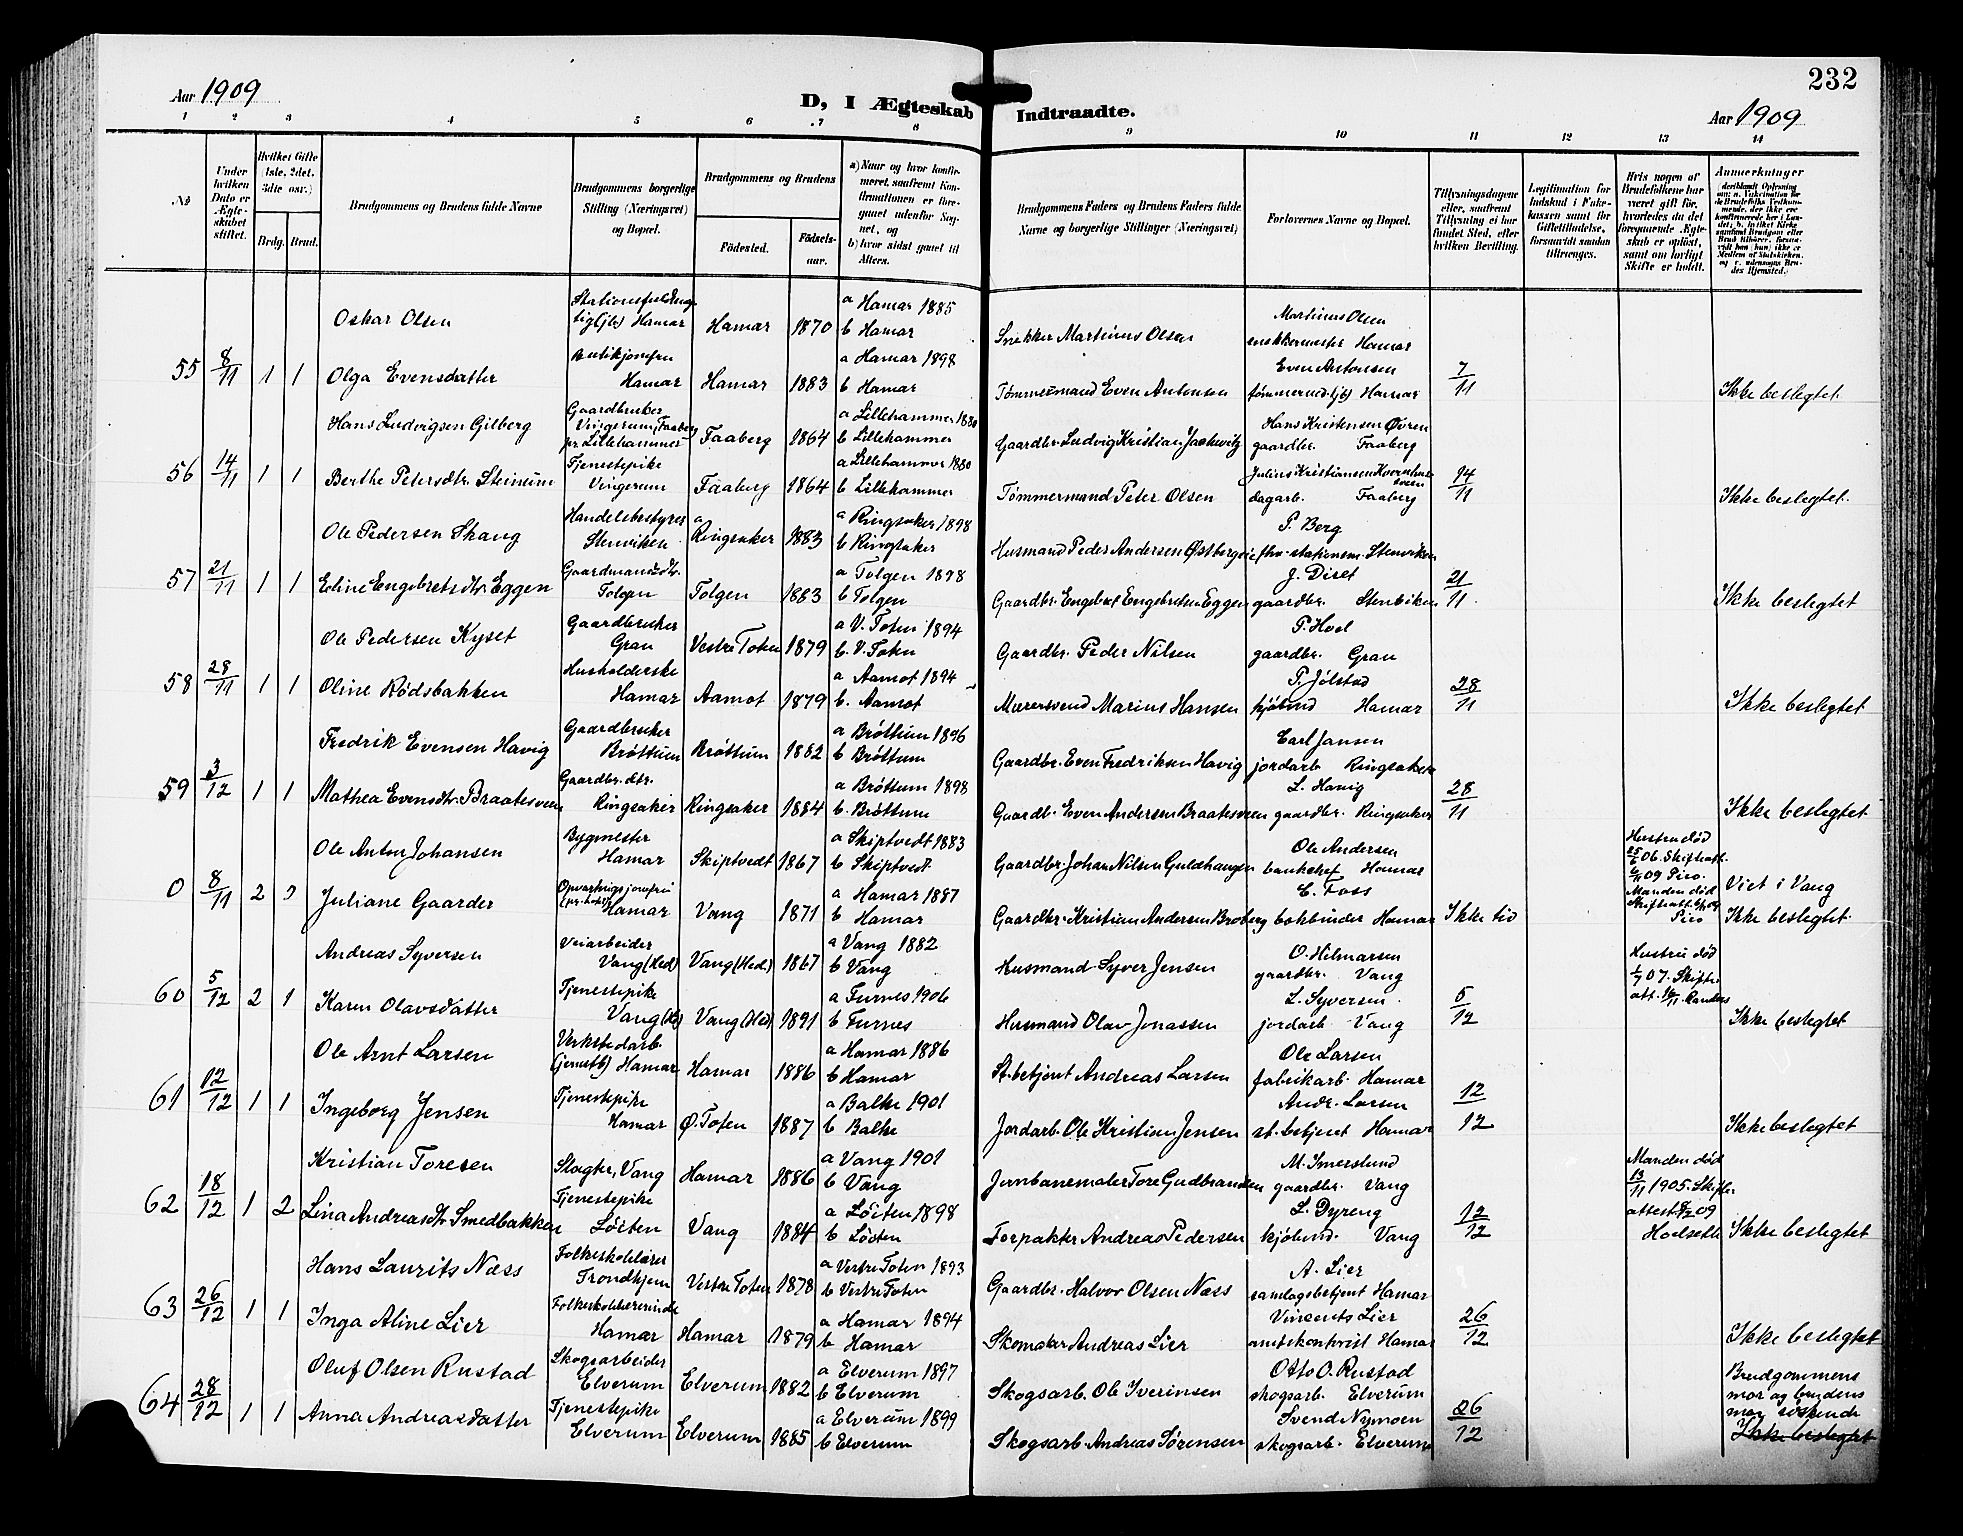 232
Aar 1909
D, I Ægteskab Indtraadte.
Aar 1909
1 2 3 4 5 6 7 8 9 10 11 12 13 14
No
Under hvilken Dato er Ægteskabet stiftet.
Hvilket Gifte (1ste, 2det, 3die osv.)
Brdg. Brud.
Brudgommens og Brudens fulde Navne
Brudgommens borgerlige Stilling (Næringsvei) og Bopæl.
Brudgommens og Brudens
Fødested. Fødselsaar.
a) Naar og hvor konfirmeret, saafremt Konfirmationen er foregaaet udenfor Sognet, og
b) hvor sidst gaaet til Alters.
Brudgommens Faders og Brudens Faders fulde Navne og borgerlige Stillinger (Næringsvei)
Forlovernes Navne og Bopæl.
Tillysningsdagene eller, saafremt Tillysning ei har fundet Sted, efter hvilken Bevilling.
Legitimation for Indskud i Enkekassen samt for Giftetilladelse, forsaavidt saadan tiltrænges.
Hvis nogen af Brudefolkene har været gift før, hvorledes da det foregaaende Ægteskab er opløst, samt om lovligt Skifte er holdt.
Anmerkninger
Oskar Olsen Hamar 1870 a Hamar 1885 b Hamar Snekker Martinus Olsen Martinus Olsen snekkermester Hamar
55 8/11 1 1 Olga Evensdatter Butikjomfru Hamar Hamar 1883 a Hamar 1898 b Hamar Tømmermand Even Antonsen Even Antonsen Hamar 7/11 Ikke beslegtet
Hans Ludvigsen Gilberg Gaardbruker Vingerum, Faaberg pr. Lillehammer Faaberg 1864 a Lillehammer 1880 b Lillehammer Gaardbr. Ludvig Kristian Hans Kristensen Øvren gaardbr. Faaberg
56 14/11 1 1 Berthe Petersdtr. Steinum Tjenestepike Vingerum Faaberg 1864 a Lillehammer 1880 b Lillehammer Tømmermand Peter Olsen Julius Kristiansen dagarb. Faaberg 14/11 Ikke beslegtet.
Ole Pedersen Skaug Handelsbestyrer Stenviken Ringsaker 1883 a Ringsaker 1898 b Ringsaker Husmand Peder Andersen P. Berg Stenviken
57 21/11 1 1 Eline Engebretsdtr. Eggen Gaardmandsdtr. Tolgen Tolgen 1883 a Tolgen 1898 b Tolgen Gaardbr. Engebret Engebretsen Eggen J. Diset gaardbr. Stenviken 21/11 Ikke beslegtet
Ole Pedersen Kyset Gaardbruker Gran Vestre Toten 1879 a V. Toten 1894 b. V. Toten Gaardbr. Peder Nilsen P. Hoel gaardbr. Gran
58 28/11 1 1 Oline Rødsbakken Husholderske Hamar Aamot 1879 a Aamot 1894 b. Aamot Murersvend Marius Hansen P. Jølstad kjøbmd Hamar 28/11 Ikke beslegtet
Fredrik Evensen Havig Gaardbruker Brøttum Brøttum 1882 a Brøttum 1896 b Brøttum Gaardbr. Even Fredriksen Havig Carl Jansen jordarb Ringsaker
59 3/12 1 1 Mathea Evensdtr. Braatesveen Gaardbr. dtr. Ringsaker Ringsaker 1884 a Brøttum 1898 b. Brøttum Gaardb. Even Andersen Braatesveen L. Havig gaardbr. Ringsaker 28/11 Ikke beslegtet
Ole Anton Johansen Bygmester Hamar Skiptvedt 1867 a Skiptvedt 1883 b Skiptvedt Gaardbr. Johan Nilsen Guldhaugen Ole Andersen bankchef Hamar Hustru død
0 8/11 2 Juliane Gaarder Opvartningsjomfru Hamar Vang 1871 a Hamar 1887 b Hamar Gaardbr. Kristian Andersen Broberg C. Foss bokbinder Hamar Ikke tid Manden død Viet i Vang Ikke beslegtet.
Andreas Syversen Veiarbeider Vang (Hed.) Vang (Hed.) 1867 a Vang 1882 b Vang Husmand Syver Jensen O. Hilmarsen gaardbr. Vang Hustru død
60 5/12 2 1 Karen Olavsdatter Tjenestepike Vang (Hed) Vang (Hed) 1891 a Furnes 1906 b Furnes Husmand Olav Jonassen L. Syversen jordarb. Vang 5/12 Ikke beslegtet
Ole Arnt Larsen Verkstedarb. (jernstb) Hamar Hamar 1886 a Hamar 1886 b Hamar St. betjent Andreas Larsen Ole Larsen fabrikarb. Hamar
61 12/12 1 1 Ingeborg Jensen Tjenestepike Hamar Ø. Toten 1887 a Balke 1901 b Balke Jordarb. Ole Kristian Jensen Andr. Larsen st. betjent Hamar 12/12 Ikke beslegtet
Kristian Toresen Slagter, Vang Hamar 1886 a Vang 1901 b Vang Jernbanemaler Tore Gudbrandsen M. Imerslund gaardbr. Vang Manden død 13/11 1905. Skifteattest 09 Hoelseth
62 18/12 1 2 Lina Andreasdtr Smedbakken Tjenestepike Løiten Vang 1884 a Løiten 1898 b Løiten Forpakter Andreas Pedersen L. Dyreng kjøbmd. Vang 12/12 Ikke beslegtet
Hans Laurits Næss Folkeskolelærer Trondhjem Vestre Toten 1878 a Vestre Toten 1893 b Vestre Toten Gaardbr. Halvor Olsen Næss A. Lier samlagsbetjent Hamar
63 26/12 1 1 Inga Aline Lier Folkeskolelærerinde Hamar Hamar 1879 a Hamar 1894 b Hamar Skomaker Andreas Lier Vincents Lier amtskontorist Hamar 26/12 Ikke beslegtet
Oluf Olsen Rustad Skogsarbeider Elverum Elverum 1882 a Elverum 1897 b Elverum Skogsarb. Ole Iverinsen Otto O. Rustad skogsarb. Elverum Brudgommens mor og brudens mor søskende
64 28/12 1 1 Anna Andreasdatter Tjenestepike Elverum Elverum 1885 a Elverum 1899 b Elverum Skogsarb. Andreas Sørensen Svend Nymoen skogsarb. Elverum 26/12 Ikke beslegtet